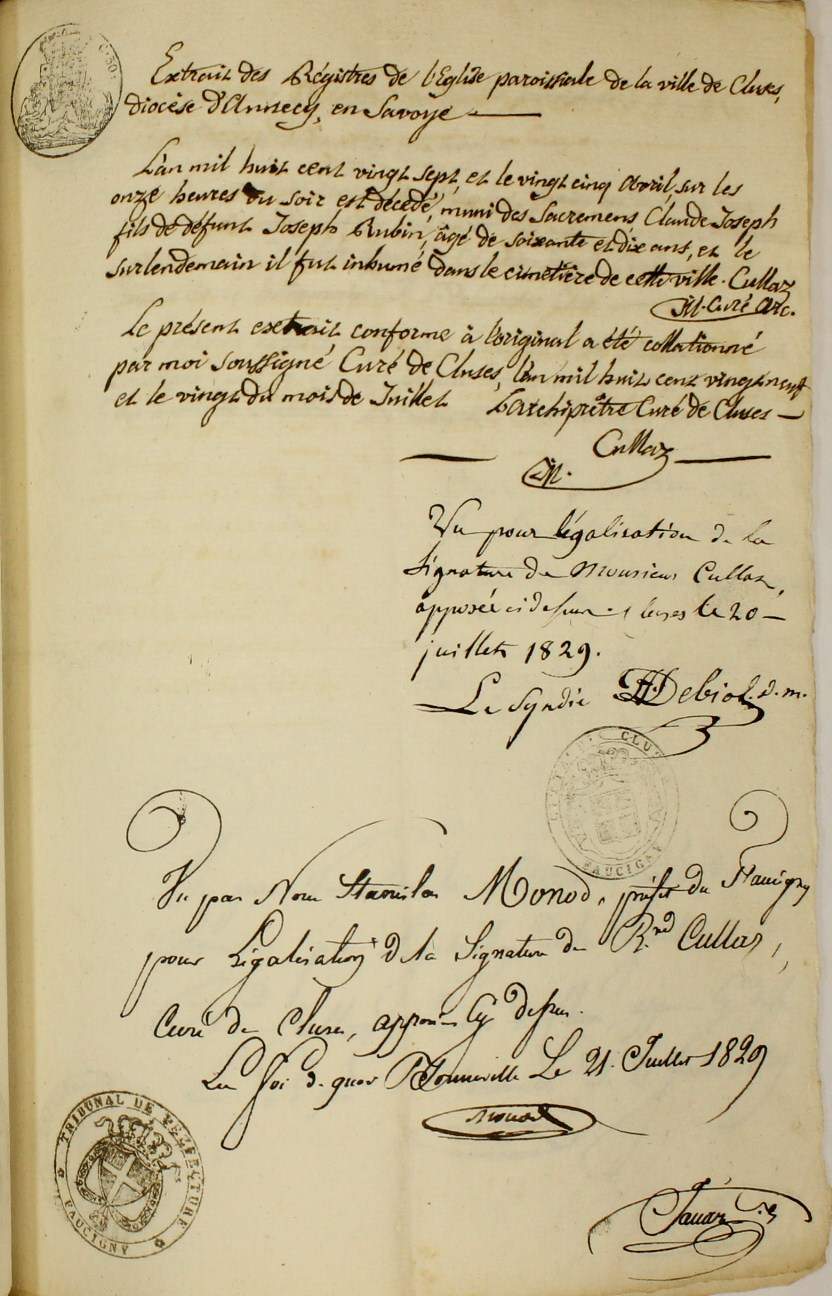 C. 80.
Extrait des Régistres de l'Eglise paroissiale de la ville de Cluses,
diocèse d'Annecy, en Savoye
L'an mil huit cent vingt sept, et le vingt cinq Avril, sur les
onze heures du soir est décédé, muni des Sacremens, Claude Joseph
fils de défunt Joseph Rubin, âgé de soixante et dix ans, et le
surlendemain il fut inhumé dans le cimetière de cette ville. Cullaz
Curé Arc.
Le présent extrait conforme à l'original a été collationné
par moi soussigné Curé de Cluses, l'an mil huit cent vingt neuf
et le vingt du mois de Juillet L'archiprêtre Curé de Cluses
Cullaz
Vu pour légalisation de la
signature de Monsieur Cullaz,
apposée ci dessus. Cluses le 20
juillet 1829.
Le Syndic Debiol. d. m.
CLU
FAUCIGNY
Vu par Nous Stanislas Monod, préfet du Faucigny
pour Légalisation de la Signature du R.nd Cullaz,
Curé de Cluses, apposée Cy dessus.
En foi de quoi Bonneville Le 21. Juillet 1829
Monod
TRIBUNAL DE PREFECTURE
FAUCIGNY